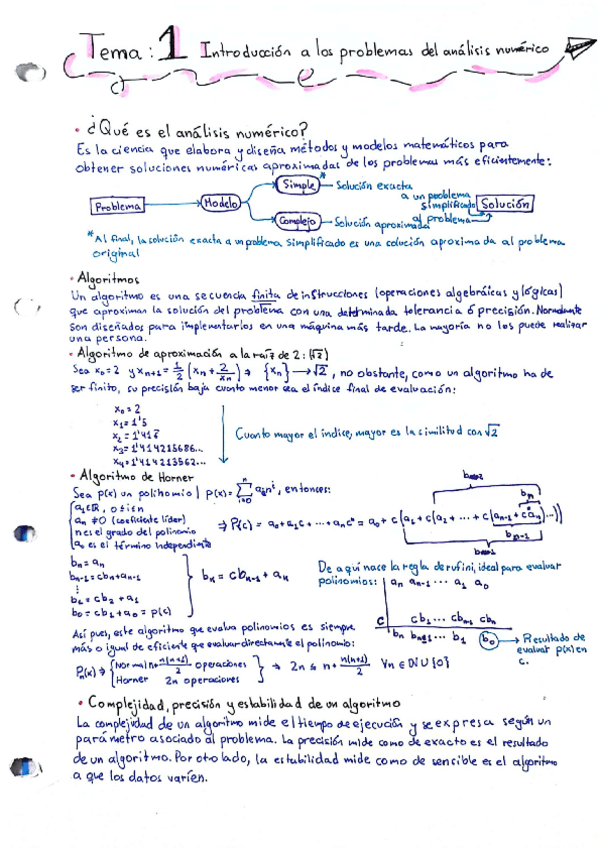 Tema: 1 Introducción a los problemas del análisis numérico
• ¿Qué es el análisis numérico?
Es la ciencia que elabora y diseña métodos y modelos matemáticos para
obtener soluciones numéricas aproximadas de los problemas más eficientemente:
Problema
Modelo
Simple *
Solución exacta
a un problema
simplificado
Complejo
Solución aproximada
al problema
Solución
*Al final, la solución exacta a un poblema simplificado es una solución aproximada al problema
original
• Algoritmos
Un algoritmo es una secuencia finita de instrucciones (operaciones algebráicas y lógicas)
que aproximan la solución del problema con una determinada tolerancia ó precisión. Normalmente
son diseñados para implementarlos en una máquina más tarde. La mayoría no los puede realizar
una persona.
• Algoritmo de aproximación a la raíz de 2: (√2)
Sea x₀=2 y xₙ₊₁ = 1/2 (xₙ + 2/xₙ) ⇒ {xₙ} → √2, no obstante, como un algoritmo ha de
ser finito, su precisión baja cuanto menor sea el índice final de evaluación:
x₀ = 2
x₁ = 1'5
x₂ = 1'416
x₃ = 1'414215686...
x₄ = 1'414213562...
Cuanto mayor el índice, mayor es la similitud con √2
• Algoritmo de Horner
Sea p(x) un polinomio | p(x) = , entonces:
aₙ ≠ 0 (coeficiente líder)
n es el grado del polinomio
a₀ es el término independiente
⇒ P(c) = a₀ + a₁c + ... + aₙcⁿ = a₀ + c(a₁ + c(a₂ + ... + c(aₙ₋₁ + caₙ)...))
bₙ
bₙ₋₁
bₙ = aₙ
bₙ₋₁ = cbₙ + aₙ₋₁
⋮
b₁ = cb₂ + a₁
b₀ = cb₁ + a₀ = p(c)
De aquí nace la regla de rufini, ideal para evaluar
polinomios:
aₙ aₙ₋₁ ... a₁ a₀
c
bₙ bₙ₋₁ ... b₁ b₀
Resultado de
evaluar p(x) en
c.
Así pues, este algoritmo que evalua polinomios es siempre
más o igual de eficiente que evaluar directamente el polinomio:
Pₙ(x) ⇒ { Normal n + n(n+1)/2 operaciones
Horner 2n operaciones } → 2n ≤ n + n(n+1)/2 ∀n ∈ ℕ ∪ {0}
• Complejidad, precisión y estabilidad de un algoritmo
La complejidad de un algoritmo mide el tiempo de ejecución y se expresa según un
parámetro asociado al problema. La precisión mide como de exacto es el resultado
de un algoritmo. Por otro lado, la estabilidad mide como de sensible es el algoritmo
a que los datos varíen.